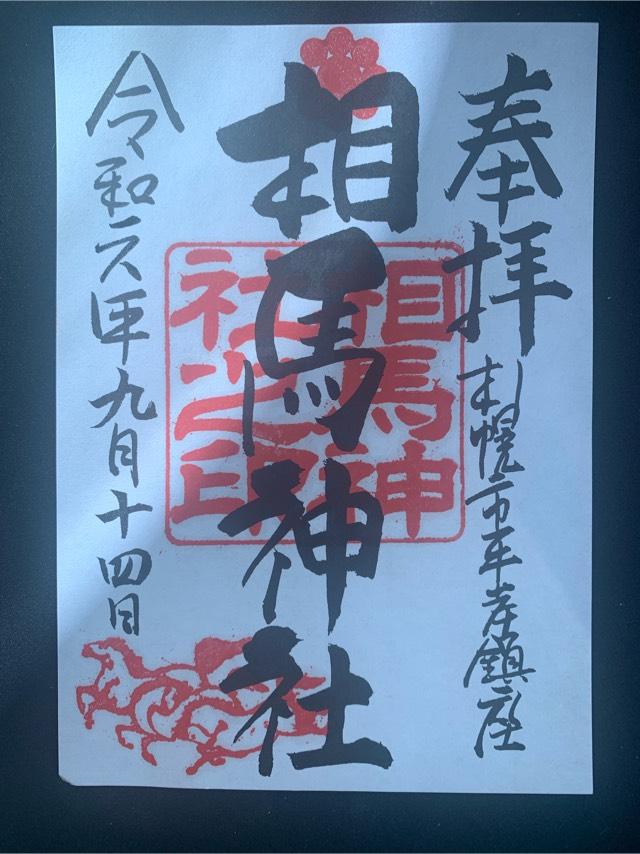 奉拝
札幌市平岸鎮座
相馬神社
相馬神社之印
令和六年九月十四日